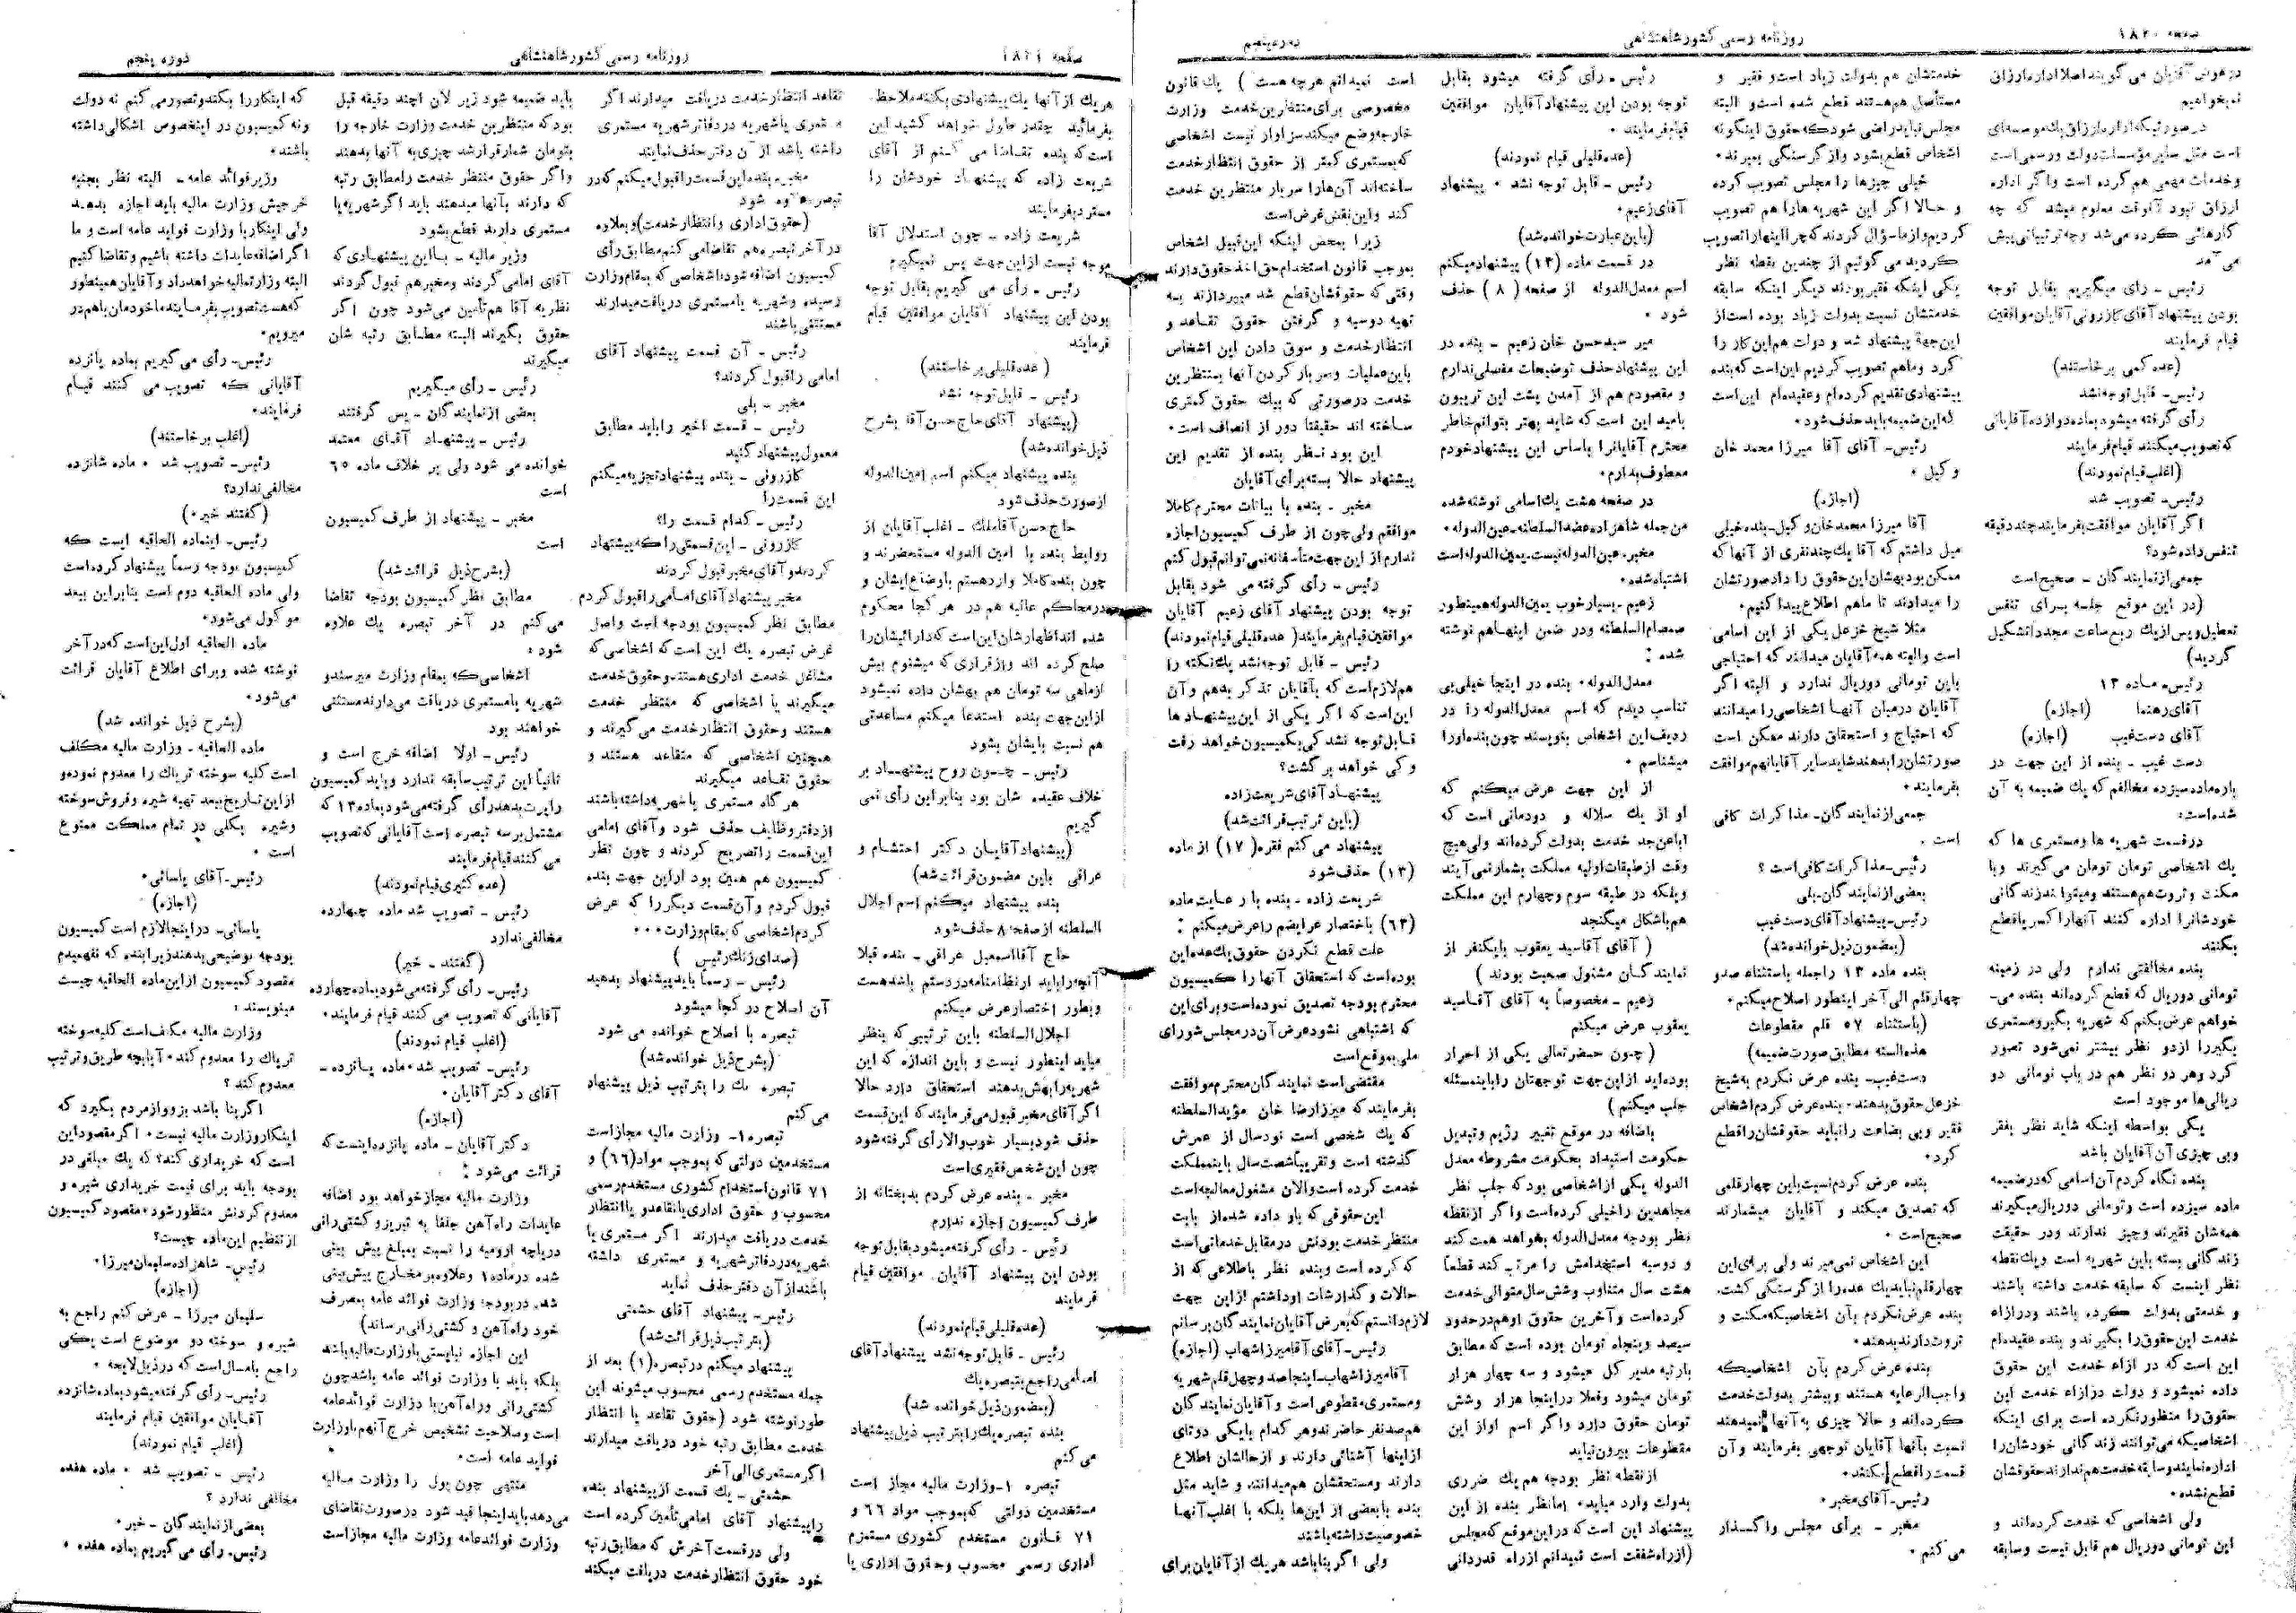 صفحه ۱۸۲۰
روزنامه رسمی کشور شاهنشاهی
در عوض آقایان می گویند اصلا اداره ارزاق
نمیخواهیم
در صورتیکه اداره ارزاق یك موسسه‌ای
است مثل سایر مؤسسات دولت و رسمی است
و خدمات مهمی هم کرده است و اگر اداره
ارزاق نبود آنوقت معلوم میشد که چه
کارهائی کرده می شد و چه ترتیباتی پیش
می آمد
رئیس - رای میگیریم بقابل توجه
بودن پیشنهاد آقای کازرونی آقایان موافقین
قیام فرمایند
(عده کمی برخاستند)
رئیس - قابل توجه نشد
رأی گرفته میشود بماده دوازده آقایانی
که تصویب میکنند قیام فرمایند
(اغلب قیام نمودند)
رئیس - تصویب شد
اگر آقایان موافقت بفرمایند چند دقیقه
تنفس داده شود؟
جمعی از نمایندگان - صحیح است
(در این موقع جلسه برای تنفس
تعطیل و پس از یك ربع ساعت مجدداً تشکیل
گردید)
رئیس - ماده ۱۳
آقای رهنما (اجازه)
آقای دست غیب (اجازه)
دست غیب - بنده از این جهت در
باره ماده سیزده مخالفم که یك ضمیمه به آن
شده است:
در قسمت شهریه ها و مستمری ها که
یك اشخاصی تومان تومان می گیرند و با
مکنت و ثروت هم هستند و میتوانند زندگانی
خودشان را اداره کنند آنها را کسر یا قطع
بکنند
بنده مخالفتی ندارم ولی در زمینه
تومانی دو ریال که قطع کرده‌اند بنده می-
خواهم عرض بکنم که شهریه بگیر و مستمری
بگیر را از دو نظر بیشتر نمی شود تصور
کرد و هر دو نظر هم در باب تومانی دو
ریالی ها موجود است
یکی بواسطه اینکه شاید نظر بفقر
و بی چیزی آن آقایان باشد
بنده نگاه کردم آن اسامی که در ضمیمه
ماده سیزده است و تومانی دو ریال میگیرند
همه‌شان فقیرند و چیز ندارند و در حقیقت
زندگانی بسته باین شهریه است و یك نقطه
نظر اینست که سابقه خدمت داشته باشند
و خدمتی بدولت کرده باشند و در ازاء
خدمت این حقوق را بگیرند و بنده عقیده‌ام
این است که در ازاء خدمت این حقوق
داده نمیشود و دولت در ازاء خدمت این
حقوق را منظور نکرده است برای اینکه
اشخاصیکه می توانند زندگانی خودشان را
اداره نمایند و سابقه خدمت هم ندارند حقوقشان
قطع نشده.
ولی اشخاصی که خدمت کرده‌اند و
این تومانی دو ریال هم قابل نیست و سابقه
خدمتشان هم بدولت زیاد است و فقیر و
مستأصل هم هستند قطع شده است و البته
مجلس نباید راضی شود که حقوق اینگونه
اشخاص قطع بشود و از گرسنگی بمیرند.
خیلی چیزها را مجلس تصویب کرده
و حالا اگر این شهریه ها را هم تصویب
کردیم و از ما سؤال کردند که چرا اینها را تصویب
کردید می گوئیم از چندین نقطه نظر
یکی اینکه فقیر بودند دیگر اینکه سابقه
خدمتشان نسبت بدولت زیاد بوده است از
این جهة پیشنهاد شد و دولت هم این کار را
کرد و ما هم تصویب کردیم این است که بنده
پیشنهادی تقدیم کرده‌ام و عقیده‌ام این است
که این ضمیمه باید حذف شود.
رئیس - آقای آقا میرزا محمد خان
وکیل.
(اجازه)
آقا میرزا محمد خان وکیل - بنده خیلی
میل داشتم که آقا یك چند نفری از آنها که
ممکن بود بهشان این حقوق را داد صورتشان
را میدادند تا ما هم اطلاع پیدا کنیم.
مثلا شیخ خزعل یکی از این اسامی
است و البته همه آقایان میدانند که احتیاجی
باین تومانی دو ریال ندارد و البته اگر
آقایان درمیان آنها اشخاصی را میدانند
که احتیاج و استحقاق دارند ممکن است
صورتشان را بدهند شاید سایر آقایان هم موافقت
بفرمایند.
جمعی از نمایندگان - مذاکرات کافی
است.
رئیس - مذاکرات کافی است؟
بعضی از نمایندگان - بلی
رئیس - پیشنهاد آقای دست غیب
(بمضمون ذیل خوانده شد)
بنده ماده ۱۳ را جمله باستثناء صد و
چهار قلم الی آخر اینطور اصلاح میکنم.
(باستثناء ۵۷ قلم مقطوعات
هذه‌السنه مطابق صورت ضمیمه)
دست غیب - بنده عرض نکردم به شیخ
خزعل حقوق بدهند. بنده عرض کردم اشخاص
فقیر و بی بضاعت را نباید حقوقشان را قطع
کرد.
بنده عرض کردم نسبت باین چهار قلمی
که تصدیق میکند و آقایان میشمارند
صحیح است.
این اشخاص نمی میرند ولی برای این
چهار قلم نباید یك عده را از گرسنگی کشت.
بنده عرض نکردم بآن اشخاصیکه مکنت و
ثروت دارند بدهند.
بنده عرض کردم بآن اشخاصیکه
واجب الرعایه هستند و بیشتر بدولت خدمت
کرده‌اند و حالا چیزی به آنها نمیدهند
نسبت بآنها آقایان توجهی بفرمایند و آن
قسمت را قطع نکنند.
رئیس - آقای مخبر.
مخبر - برأی مجلس واگذار
می کنم.
رئیس - رأی گرفته میشود بقابل
توجه بودن این پیشنهاد آقایان موافقین
قیام فرمایند.
(عده قلیلی قیام نمودند)
رئیس - قابل توجه نشد. پیشنهاد
آقای زعیم.
(باین عبارت خوانده شد)
در قسمت ماده (۱۳) پیشنهاد میکنم
اسم معدل الدوله از صفحه (۸) حذف
شود.
میر سید حسن خان زعیم - بنده در
این پیشنهاد حذف توضیحات مفصلی ندارم
و مقصودم هم از آمدن پشت این تریبون
بامید این است که شاید بهتر بتوانم خاطر
محترم آقایان را باساس این پیشنهاد خودم
معطوف بدارم.
در صفحه هشت یك اسامی نوشته شده
من جمله شاهزاده عضدالسلطنه - عین الدوله.
مخبر - عین الدوله نیست - یمین الدوله است
اشتباه شده.
زعیم - بسیار خوب یمین الدوله همینطور
صمصام السلطنه و در ضمن اینها هم نوشته
شده:
معدل الدوله. بنده در اینجا خیلی بی
تناسب دیدم که اسم معدل الدوله را در
ردیف این اشخاص بنویسند چون بنده او را
میشناسم.
از این جهت عرض میکنم که
او از یك سلاله و دودمانی است که
اباعن جد خدمت بدولت کرده‌اند ولی هیچ
وقت از طبقات اولیه مملکت بشمار نمی آیند
و بلکه در طبقه سوم و چهارم این مملکت
هم باشکال میگنجد
(آقای آقا سید یعقوب با یکنفر از
نمایندگان مشغول صحبت بودند)
زعیم - مخصوصاً به آقای آقا سید
یعقوب عرض میکنم
(چون حضرتعالی یکی از احرار
بوده‌اید از این جهت توجهتان را باین مسئله
جلب میکنم)
باضافه در موقع تغییر رژیم و تبدیل
حکومت استبداد بحکومت مشروطه معدل
الدوله یکی از اشخاصی بود که جلب نظر
مجاهدین را خیلی کرده است و اگر از نقطه
نظر بودجه معدل الدوله بخواهد همت کند
و دوسیه استخدامش را مرتب کند قطعاً
هشت سال متناوب و شش سال متوالی خدمت
کرده است و آخرین حقوق او هم در حدود
سیصد و پنجاه تومان بوده است که مطابق
با رتبه مدیر کل میشود و سه چهار هزار
تومان میشود و فعلا در اینجا هزار و شش
تومان حقوق دارد و اگر اسم او از این
مقطوعات بیرون نیاید
از نقطه نظر بودجه هم یك ضرری
بدولت وارد میاید. اما نظر بنده از این
پیشنهاد این است که در این موقع که مجلس
(از راه شفقت است نمیدانم از راه قدردانی
است نمیدانم هرچه هست) یك قانون
مخصوصی برای منتظرین خدمت وزارت
خارجه وضع میکند سزاوار نیست اشخاصی
که بمستمری کمتر از حقوق انتظار خدمت
ساخته‌اند آن ها را سربار منتظرین خدمت
کند و این نقض غرض است
زیرا بمحض اینکه این قبیل اشخاص
بموجب قانون استخدام حق اخذ حقوق دارند
وقتی که حقوقشان قطع شد میپردازند به
تهیه دوسیه و گرفتن حقوق تقاعد و
انتظار خدمت و سوق دادن این اشخاص
باین عملیات و سربار کردن آنها بمنتظرین
خدمت در صورتی که بیك حقوق کمتری
ساخته اند حقیقتاً دور از انصاف است.
این بود نظر بنده از تقدیم این
پیشنهاد حالا بسته برأی آقایان
مخبر - بنده با بیانات محترم کاملا
موافقم ولی چون از طرف کمیسیون اجازه
ندارم از این جهت متأسفانه نمی توانم قبول کنم
رئیس - رأی گرفته می شود بقابل
توجه بودن پیشنهاد آقای زعیم آقایان
موافقین قیام بفرمایند (عده قلیلی قیام نمودند)
رئیس - قابل توجه نشد یك نکته را
هم لازم است که بآقایان تذکر بدهم و آن
این است که اگر یکی از این پیشنهاد ها
قابل توجه نشد کی بکمیسیون خواهد رفت
و کی خواهد برگشت؟
پیشنهاد آقای شریعت زاده
(باین ترتیب قرائت شد)
پیشنهاد می کنم فقره (۱۷) از ماده
(۱۳) حذف شود
شریعت زاده - بنده با رعایت ماده
(۶۳) باختصار عرایضم را عرض میکنم:
علت قطع نکردن حقوق یك عده این
بوده است که استحقاق آنها را کمیسیون
محترم بودجه تصدیق نموده است و برای این
که اشتباهی نشود عرض آن در مجلس شورای
ملی بموقع است
مقتضی است نمایندگان محترم موافقت
بفرمایند که میرزا رضا خان مؤید السلطنه
که یك شخصی است نود سال از عمرش
گذشته است و تقریباً شصت سال باین مملکت
خدمت کرده است و الان مشغول معالجه است
این حقوقی که باو داده شده از بابت
منتظر خدمت بودنش در مقابل خدماتی است
که کرده است و بنده نظر باطلاعی که از
حالات و گذارشات او داشتم از این جهت
لازم دانستم که بعرض آقایان نمایندگان برسانم
رئیس - آقای آقا میرزا شهاب (اجازه)
آقا میرزا شهاب - اینجا صد و چهل قلم شهریه
و مستمری مقطوعی است و آقایان نمایندگان
هم صد نفر حاضرند و هر کدام با یکی دوتای
از اینها آشنائی دارند و از حالشان اطلاع
دارند و مستحقشان هم میدانند و شاید مثل
بنده با بعضی از این‌ها بلکه با اغلب آنها
خصوصیت داشته باشند
ولی اگر بنا باشد هر یك از آقایان برای
صفحه ۱۸۲۱
روزنامه رسمی کشور شاهنشاهی
دوره پنجم
هر یك از آنها یك پیشنهادی بکنند ملاحظه
بفرمائید چقدر طول خواهد کشید این
است که بنده تقاضا می کنم از آقای
شریعت زاده که پیشنهاد خودشان را
مسترد بفرمایند
شریعت زاده - چون استدلال آقا
موجه نیست از این جهت پس نمیگیرم
رئیس - رأی می گیریم بقابل توجه
بودن این پیشنهاد آقایان موافقین قیام
فرمایند
(عده قلیلی برخاستند)
رئیس - قابل توجه نشد
(پیشنهاد آقای حاج حسن آقا بشرح
ذیل خوانده شد)
بنده پیشنهاد میکنم اسم امین الدوله
از صورت حذف شود
حاج حسن آقا ملك - اغلب آقایان از
روابط بنده با امین الدوله مستحضرند و
چون بنده کاملا وارد هستم باوضاع ایشان و
در محاکم عالیه هم در هر کجا محکوم
شده اند اظهارشان این است که دارائیشان را
صلح کرده اند و از قراری که میشنوم بیش
از ماهی سه تومان هم بهشان داده نمیشود
از این جهت بنده استدعا میکنم مساعدتی
هم نسبت بایشان بشود
رئیس - چون روح پیشنهاد بر
خلاف عقیده شان بود بنابراین رأی نمی
گیریم
(پیشنهاد آقایان دکتر احتشام و
عراقی باین مضمون قرائت شد)
بنده پیشنهاد میکنم اسم اجلال
السلطنه از صفحه ۸ حذف شود
حاج آقا اسمعیل عراقی - بنده قبلا
آنچه را باید از نظامنامه در دستم باشد هست
و بطور اختصار عرض میکنم
اجلال السلطنه باین ترتیبی که بنظر
میاید اینطور نیست و باین اندازه که این
شهریه را بهش بدهند استحقاق دارد حالا
اگر آقای مخبر قبول می فرمایند که این قسمت
حذف شود بسیار خوب والا رأی گرفته شود
چون این شخص فقیری است
مخبر - بنده عرض کردم بدبختانه از
طرف کمیسیون اجازه ندارم
رئیس - رأی گرفته میشود بقابل توجه
بودن این پیشنهاد آقایان موافقین قیام
فرمایند
(عده قلیلی قیام نمودند)
رئیس - قابل توجه نشد پیشنهاد آقای
امامی راجع بتبصره یك
(بمضمون ذیل خوانده شد)
بنده تبصره یك را بترتیب ذیل پیشنهاد
می کنم
تبصره ۱ - وزارت مالیه مجاز است
مستخدمین دولتی که بموجب مواد ۶۶ و
۷۱ قانون مستخدم کشوری مستلزم
اداری رسمی محسوب و حقوق اداری یا
تقاعد انتظار خدمت دریافت میدارند اگر
مستمری یا شهریه در دفاتر شهریه مستمری
داشته باشد از آن دفتر حذف نمایند
مخبر - بنده این قسمت را قبول میکنم که در
تبصره علاوه شود
(حقوق اداری و انتظار خدمت) و بعلاوه
در آخر تبصره هم تقاضا می کنم مطابق رأی
کمیسیون اضافه شود اشخاصی که بمقام وزارت
رسیده و شهریه یا مستمری دریافت میدارند
مستثنی باشند
رئیس - آن قسمت پیشنهاد آقای
امامی را قبول کردند؟
مخبر - بلی
رئیس - قسمت اخیر را باید مطابق
معمول پیشنهاد کنید
کازرونی - بنده پیشنهاد تجزیه میکنم
این قسمت را
رئیس - کدام قسمت را؟
کازرونی - این قسمتی را که پیشنهاد
کردند و آقای مخبر قبول کردند
مخبر پیشنهاد آقای امامی را قبول کردم
مطابق نظر کمیسیون بودجه است و اصل
غرض تبصره یك این است که اشخاصی که
مشاغل خدمت اداری هستند و حقوق خدمت
میگیرند یا اشخاصی که منتظر خدمت
هستند و حقوق انتظار خدمت می گیرند و
همچنین اشخاصی که متقاعد هستند و
حقوق تقاعد میگیرند
هر گاه مستمری یا شهریه داشته باشند
از دفتر وظایف حذف شود و آقای امامی
این قسمت را تصریح کردند و چون نظر
کمیسیون هم همین بود از این جهت بنده
قبول کردم و آن قسمت دیگر را که عرض
کردم اشخاصی که بمقام وزارت...
(صدای زنگ رئیس)
رئیس - رسماً باید پیشنهاد بدهید
آن اصلاح در کجا میشود
تبصره با اصلاح خوانده می شود
(بشرح ذیل خوانده شد)
تبصره یك را بترتیب ذیل پیشنهاد
می کنم
تبصره ۱- وزارت مالیه مجاز است
مستخدمین دولتی که بموجب مواد (۶۶) و
۷۱ قانون استخدام کشوری مستخدم رسمی
محسوب و حقوق اداری یا تقاعد و یا انتظار
خدمت دریافت میدارند اگر مستمری یا
شهریه در دفاتر شهریه و مستمری داشته
باشند از آن دفتر حذف نماید
رئیس - پیشنهاد آقای حشمتی
(بترتیب ذیل قرائت شد)
پیشنهاد میکنم در تبصره (۱) بعد از
جمله مستخدم رسمی محسوب میشوند این
طور نوشته شود (حقوق تقاعد یا انتظار
خدمت مطابق رتبه خود دریافت میدارند
اگر مستمری الی آخر
حشمتی - یك قسمت از پیشنهاد بنده
را پیشنهاد آقای امامی تأمین کرده است
ولی در قسمت آخرش که مطابق رتبه
خود حقوق انتظار خدمت دریافت میکند
باید ضمیمه شود زیرا الان چند دقیقه قبل
بود که منتظرین خدمت وزارت خارجه را
بتومان شمار قرار شد چیزی به آنها بدهند
و اگر حقوق منتظر خدمت را مطابق رتبه
که دارند بآنها میدهند باید اگر شهریه یا
مستمری دارند قطع بشود
وزیر مالیه - با این پیشنهادی که
آقای امامی کردند و مخبر هم قبول کردند
نظریه آقا هم تأمین می شود چون اگر
حقوق بگیرند البته مطابق رتبه شان
میگیرند
رئیس - رأی میگیریم
بعضی از نمایندگان - پس گرفتند
رئیس - پیشنهاد آقای معتمد
خوانده می شود ولی بر خلاف ماده ۶۵
است
مخبر - پیشنهاد از طرف کمیسیون
است
(بشرح ذیل قرائت شد)
مطابق نظر کمیسیون بودجه تقاضا
می کنم در آخر تبصره یك علاوه
شود:
اشخاصی که بمقام وزارت میرسند و
شهریه یا مستمری دریافت می دارند مستثنی
خواهند بود
رئیس - اولا اضافه خرج است و
ثانیاً این ترتیب سابقه ندارد و باید کمیسیون
راپرت بدهد رأی گرفته می شود بماده ۱۳ که
مشتمل بر سه تبصره است آقایانی که تصویب
می کنند قیام فرمایند
(عده کثیری قیام نمودند)
رئیس - تصویب شد ماده چهارده
مخالفی ندارد
(گفتند - خیر)
رئیس - رأی گرفته می شود بماده چهارده
آقایانی که تصویب می کنند قیام فرمایند.
(اغلب قیام نمودند)
رئیس - تصویب شد. ماده پانزده -
آقای دکتر آقایان.
(اجازه)
دکتر آقایان - ماده پانزده اینست که
قرائت می شود:
وزارت مالیه مجاز خواهد بود اضافه
عایدات راه آهن جلفا به تبریز و کشتی رانی
دریاچه ارومیه را نسبت بمبلغ پیش بینی
شده در ماده ۱ و علاوه بر مخارج پیش بینی
شده در بودجه وزارت فوائد عامه بمصرف
خود راه آهن و کشتی رانی برساند)
این اجازه نبایستی با وزارت مالیه باشد
بلکه باید با وزارت فوائد عامه باشد چون
کشتی رانی و راه آهن با وزارت فوائد عامه
است و صلاحیت تشخیص خرج آنهم با وزارت
فواید عامه است.
منتهی چون پول را وزارت مالیه
می دهد باید اینجا قید شود در صورت تقاضای
وزارت فوائد عامه وزارت مالیه مجاز است
که اینکار را بکند و تصور می کنم نه دولت
و نه کمیسیون در اینخصوص اشکالی داشته
باشند.
وزیر فوائد عامه - البته نظر بجنبه
خرجیش وزارت مالیه باید اجازه بدهد
ولی اینکار با وزارت فواید عامه است و ما
اگر اضافه عایدات داشته باشیم و تقاضا کنیم
البته وزارت مالیه خواهد داد و آقایان همینطور
که هست تصویب بفرمایند ما خودمان باهم در
میرویم.
رئیس - رأی می گیریم بماده پانزده
آقایانی که تصویب می کنند قیام
فرمایند.
(اغلب برخاستند)
رئیس - تصویب شد. ماده شانزده
مخالفی ندارد؟
(گفتند خیر.)
رئیس - اینماده الحاقیه ایست که
کمیسیون بودجه رسماً پیشنهاد کرده است
ولی ماده الحاقیه دوم است بنابراین ببعد
موکول می شود.
ماده الحاقیه اول این است که در آخر
نوشته شده و برای اطلاع آقایان قرائت
می شود.
(بشرح ذیل خوانده شد)
ماده الحاقیه - وزارت مالیه مکلف
است کلیه سوخته تریاك را معدوم نموده و
از این تاریخ ببعد تهیه شیره و فروش سوخته
و شیره بکلی در تمام مملکت ممنوع
است.
رئیس - آقای یاسائی.
(اجازه)
یاسائی - در اینجا لازم است کمیسیون
بودجه توضیحی بدهند زیرا بنده که نفهمیدم
مقصود کمیسیون از این ماده الحاقیه چیست
مینویسند:
وزارت مالیه مکلف است کلیه سوخته
تریاك را معدوم کند. آیا بچه طریق و ترتیب
معدوم کند؟
اگر بنا باشد بزور از مردم بگیرد که
اینکار وزارت مالیه نیست. اگر مقصود این
است که خریداری کند؟ که یك مبلغی در
بودجه باید برای قیمت خریداری شیره و
معدوم کردنش منظور شود. مقصود کمیسیون
از تنظیم این ماده چیست؟
رئیس - شاهزاده سلیمان میرزا.
(اجازه)
سلیمان میرزا - عرض کنم راجع به
شیره و سوخته دو موضوع است یکی
راجع بامسال است که در ذیل لایحه.
رئیس - رأی گرفته میشود بماده شانزده
آقایان موافقین قیام فرمایند
(اغلب قیام نمودند)
رئیس - تصویب شد. ماده هفده
مخالفی ندارد؟
بعضی از نمایندگان - خیر.
رئیس - رأی می گیریم بماده هفده.